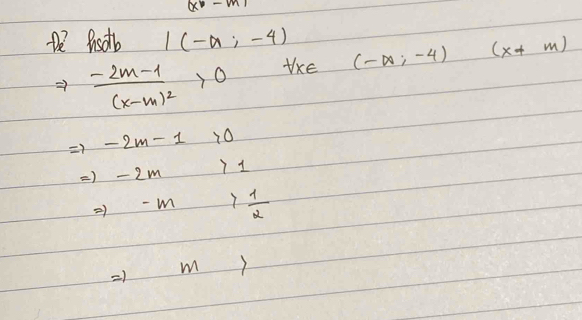 Để hsđb / (-∞ ; -4)
=> \frac{-2m-1}{(x-m)²} > 0 ∀x∈ (-∞ ; -4) (x≠ m)
=> -2m - 1 > 0
=> -2m > 1
=> -m > \frac{1}{2}
=> m >